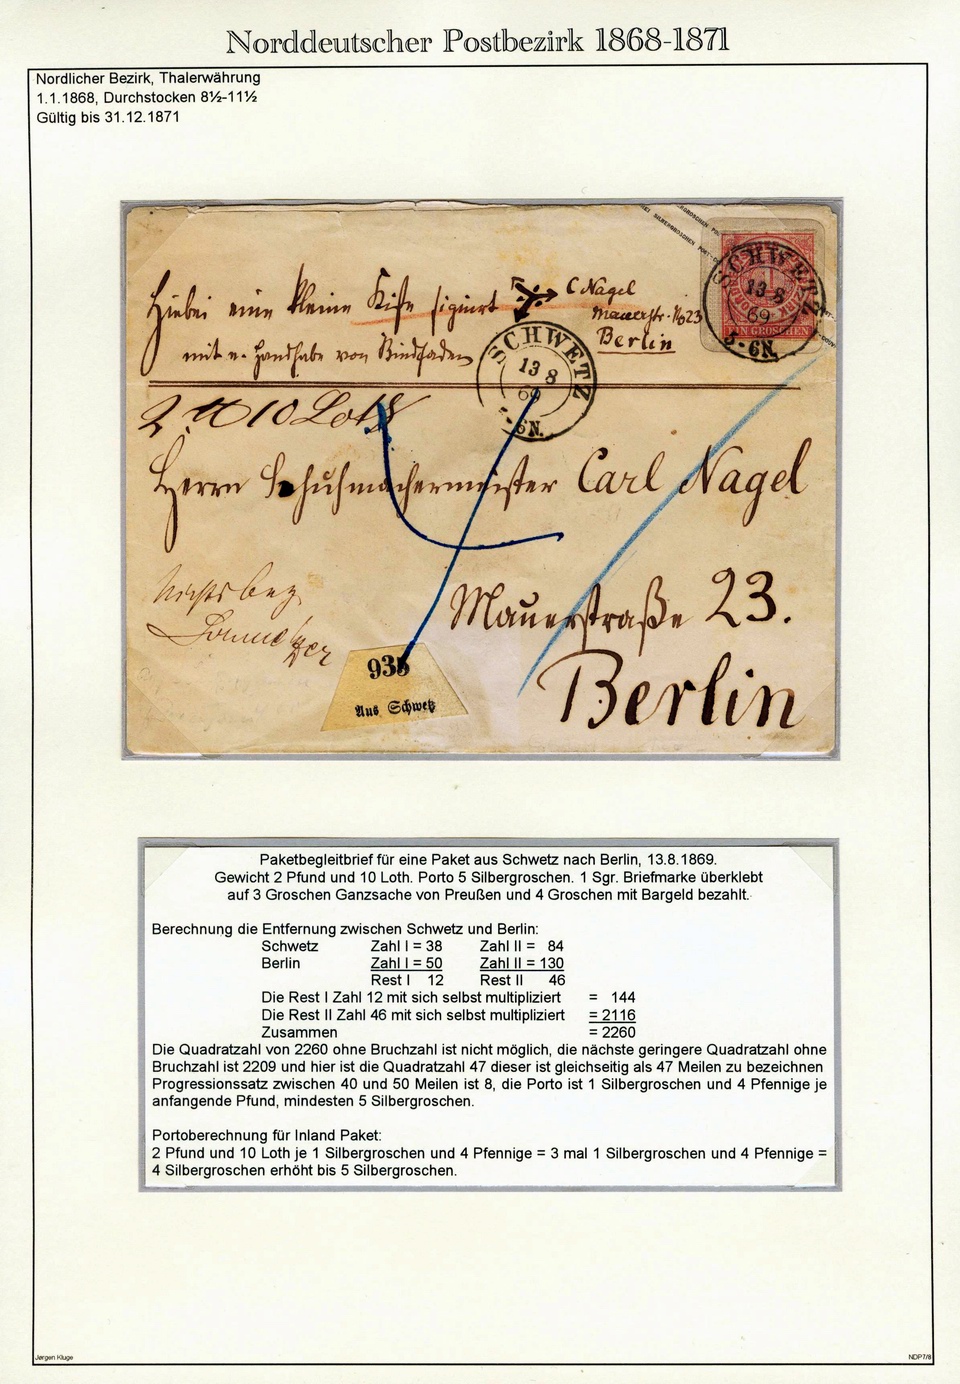 Norddeutscher Postbezirk 1868-1871
Nordlicher Bezirk, Thalerwährung
1.1.1868, Durchstocken 8½-11½
Gültig bis 31.12.1871
SILBERGROSCHEN POST
SCHWETZ
13 8
69
5-6N.
EIN GROSCHEN
Hiebei eine kleine Kiste signirt
C Nagel
Mauerstr. No 23
Berlin
mit e. Handhabe von Bindfaden
SCHWETZ
13 8
69
5-6N.
2 ℔ 10 Loth
Herrn Schuhmachermeister Carl Nagel
Mauerstraße 23.
Berlin
935
Aus Schwetz
Paketbegleitbrief für eine Paket aus Schwetz nach Berlin, 13.8.1869.
Gewicht 2 Pfund und 10 Loth. Porto 5 Silbergroschen. 1 Sgr. Briefmarke überklebt
auf 3 Groschen Ganzsache von Preußen und 4 Groschen mit Bargeld bezahlt.
Berechnung die Entfernung zwischen Schwetz und Berlin:
Schwetz Zahl I = 38 Zahl II = 84
Berlin Zahl I = 50 Zahl II = 130
Rest I 12 Rest II 46
Die Rest I Zahl 12 mit sich selbst multipliziert = 144
Die Rest II Zahl 46 mit sich selbst multipliziert = 2116
Zusammen = 2260
Die Quadratzahl von 2260 ohne Bruchzahl ist nicht möglich, die nächste geringere Quadratzahl ohne
Bruchzahl ist 2209 und hier ist die Quadratzahl 47 dieser ist gleichseitig als 47 Meilen zu bezeichnen
Progressionssatz zwischen 40 und 50 Meilen ist 8, die Porto ist 1 Silbergroschen und 4 Pfennige je
anfangende Pfund, mindesten 5 Silbergroschen.
Portoberechnung für Inland Paket:
2 Pfund und 10 Loth je 1 Silbergroschen und 4 Pfennige = 3 mal 1 Silbergroschen und 4 Pfennige =
4 Silbergroschen erhöht bis 5 Silbergroschen.
Jørgen Kluge
NDP7/8